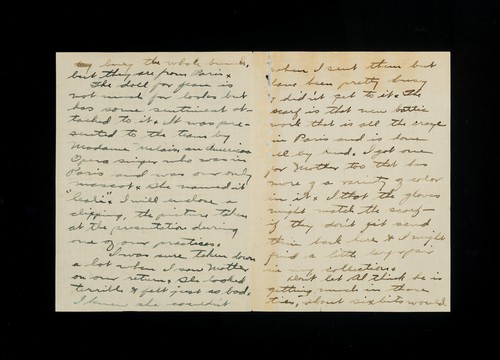 buy the whole bunch,
but they are from Paris &
The doll for Jean is
not much for looks but
has some sentiment at-
tached to it. It was pre-
sented to the team by
Madame an American
Opera singer who was in
Paris and was our only
mascot & She named it
"Leslie". I will enclose a
clipping, the picture taken
at the presentation during
one of our practices.
I was sure taken down
a lot when I saw Mother
on our return, she looked
terrible & felt just as bad.
I knew she wouldn't
when I sent them but
have been pretty busy
& didn't get to it & the
scarf is that new
work that is all the craze
in Paris and is done
all by hand. I got one
for Mother too that has
more of a variety of color
in it. & I that the gloves
might match the scarf
if they don't just send
them back here & I might
find a little
in my collection.
Don't let Al think he is
getting much in those
ties, about six bits would